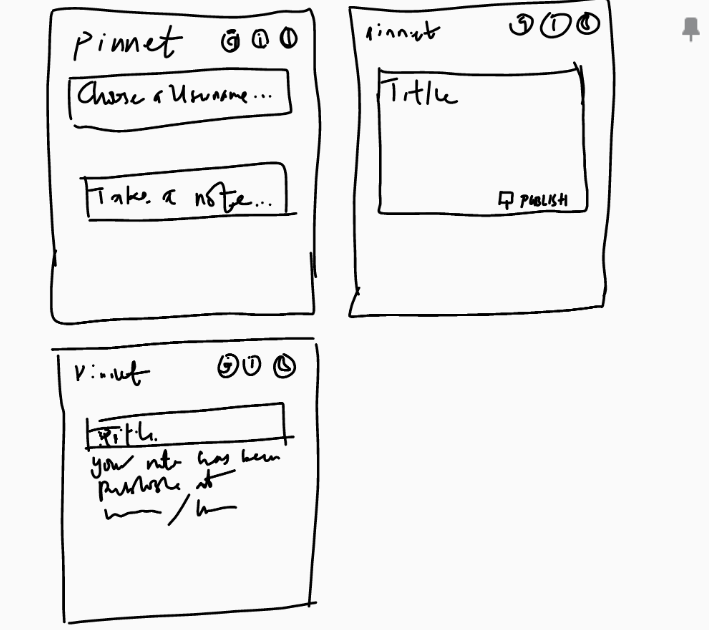 Pinnet G i
Choose a Username...
Take a note...
Pinnet G i
Title
PUBLISH
Pinnet G i
Title
your note has been
publishe at
/